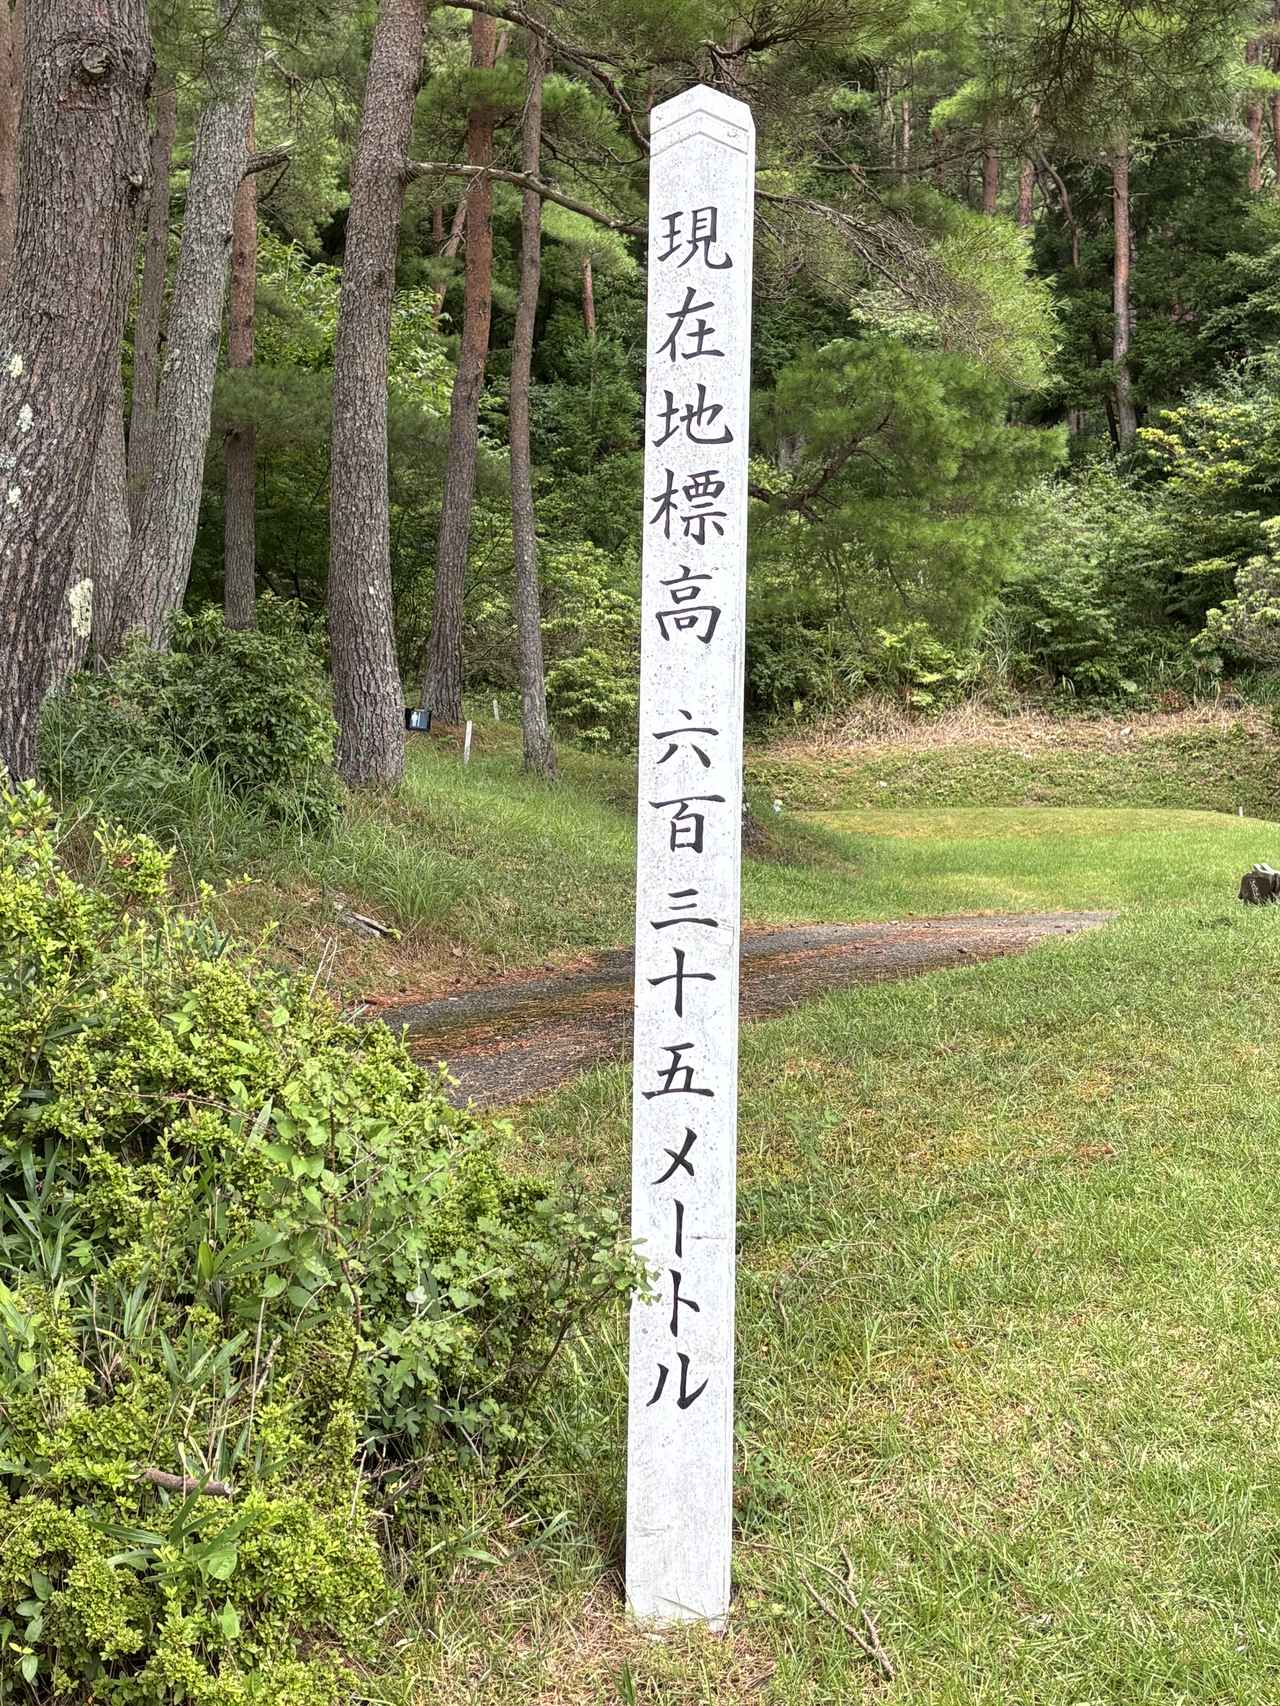 現在地標高 六百三十五メートル